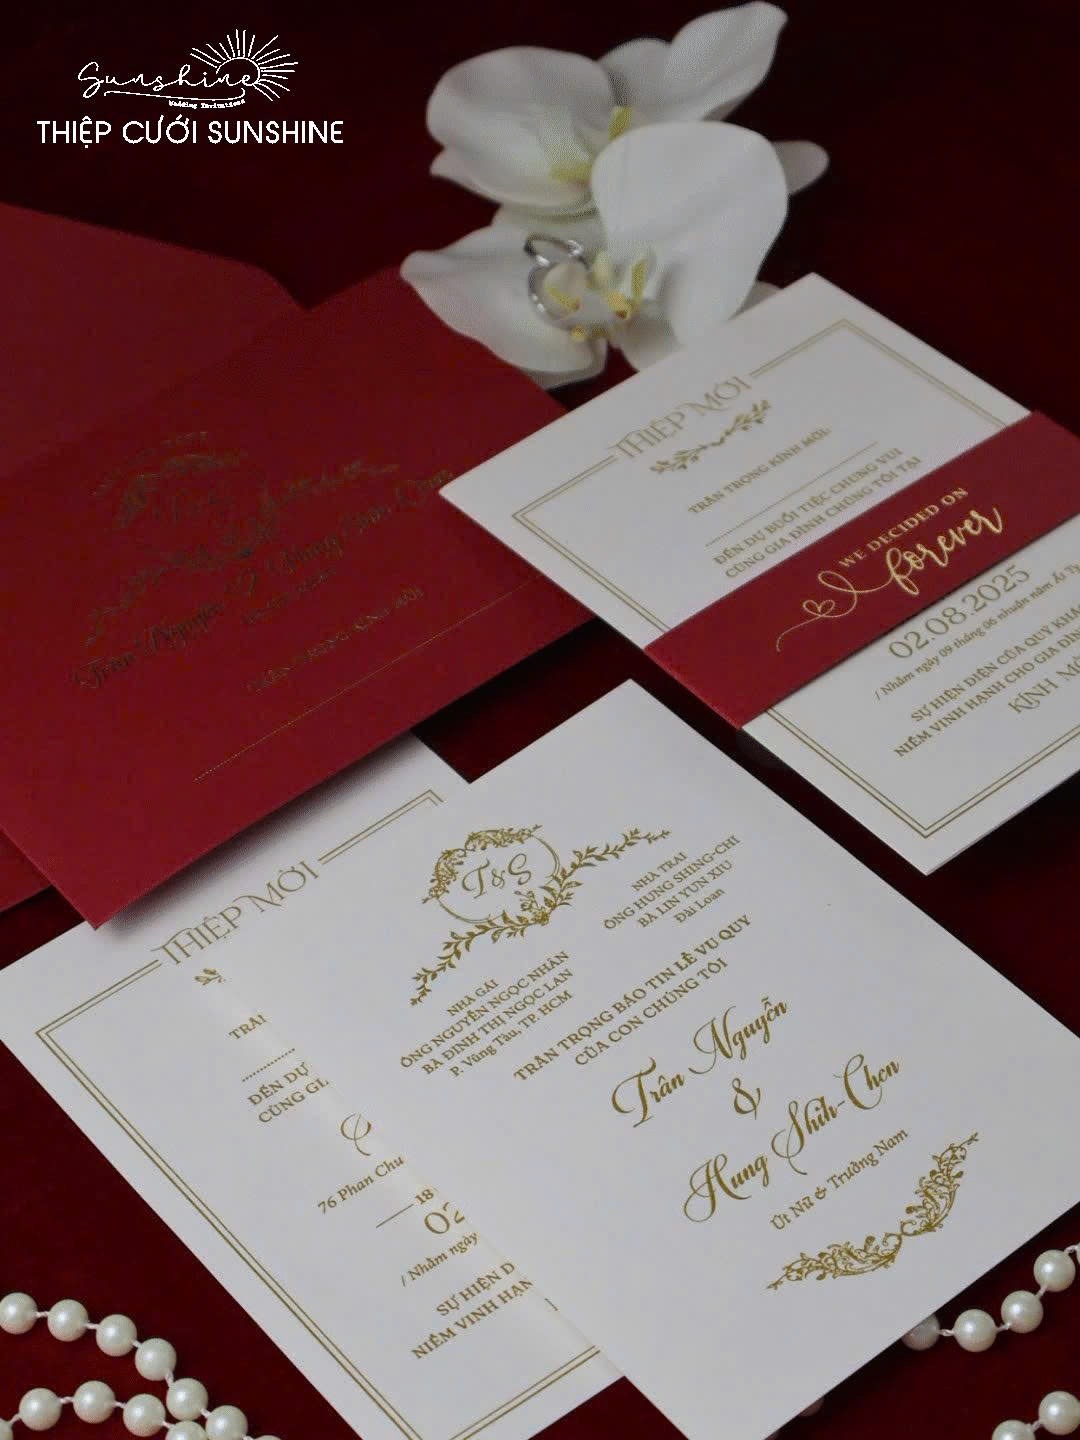 Sunshine
Wedding Invitations
THIỆP CƯỚI SUNSHINE
THIỆP MỜI
TRÂN TRỌNG KÍNH MỜI:
ĐẾN DỰ BUỔI TIỆC CHUNG VUI
CÙNG GIA ĐÌNH CHÚNG TÔI TẠI
WE DECIDED ON
forever
02.08.2025
/ Nhằm ngày 09 tháng 06 nhuận năm Ất Tỵ
SỰ HIỆN DIỆN CỦA QUÝ KHÁ
NIỀM VINH HẠNH CHO GIA ĐÌN
KÍNH MỜ
Trân Nguyễn & Hung Shih-Chen
TRÂN TRỌNG KÍNH MỜI
T&S
NHÀ TRAI
ÔNG HUNG SHING-CHI
BÀ LIN YUN XIU
Đài Loan
NHÀ GÁI
ÔNG NGUYỄN NGỌC NHÂN
BÀ ĐINH THỊ NGỌC LAN
P. Vũng Tàu, TP. HCM
TRÂN TRỌNG BÁO TIN LỄ VU QUY
CỦA CON CHÚNG TÔI
Trân Nguyễn
&
Hung Shih-Chen
Út Nữ & Trưởng Nam
THIỆP MỜI
TRÂ
ĐẾN DỰ
CÙNG GI
76 Phan Chu
18
02
/ Nhằm ngày
SỰ HIỆN D
NIỀM VINH HẠN